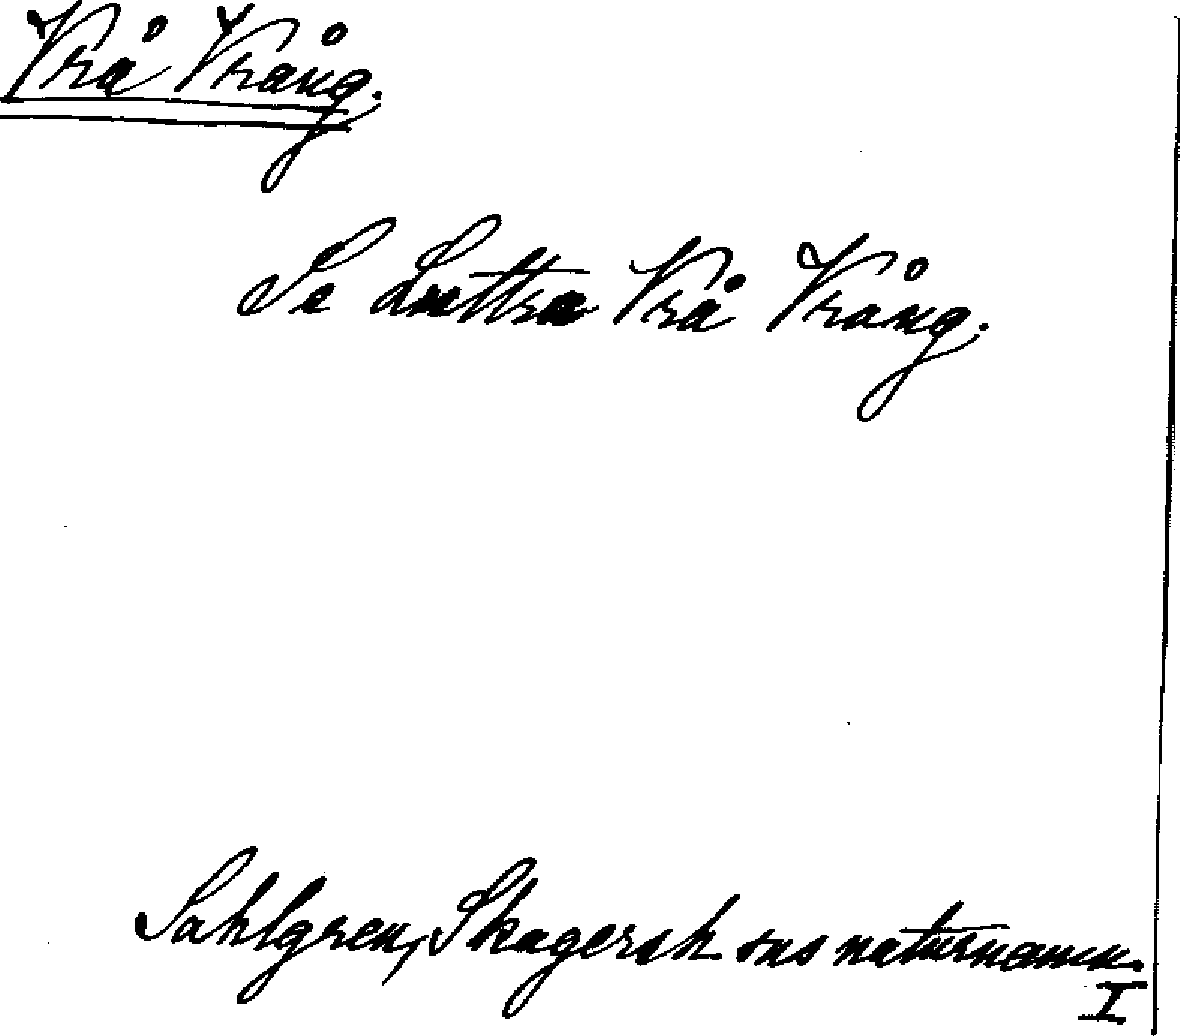 Vrå Vrång.
Se Luttra Vrå Vrång.
Sahlgren, Skagersh sns naturnamn.
I